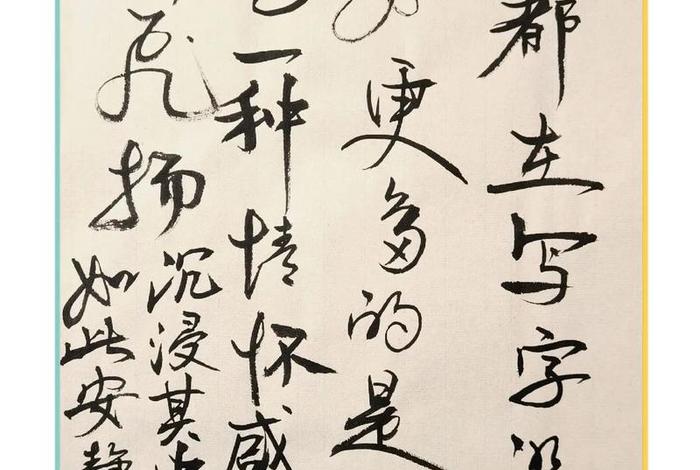 都在写字
更多的是
一种情怀感
飞扬
沉浸其
如此安静